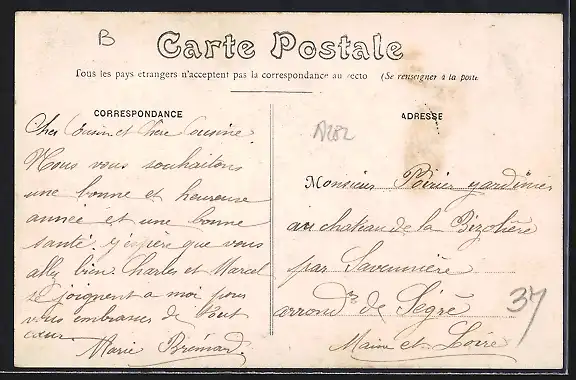 B
Carte Postale
Tous les pays étrangers n'acceptent pas la correspondance au recto (Se renseigner à la poste
CORRESPONDANCE
Cher Cousin et Chère Cousine.
Nous vous souhaitons
une bonne et heureuse
année et une bonne
santé. j'éspère que vous
allez bien. Charles et Marcel
se joignent a moi pour
vous embrasser de tout
cœur.
Marie Brémard.
ADRESSE
A282
Monsieur Poirier jardinier
au chateau de la Bizolière
par Savennière
arrond.t de Ségré
Maine et Loire
37